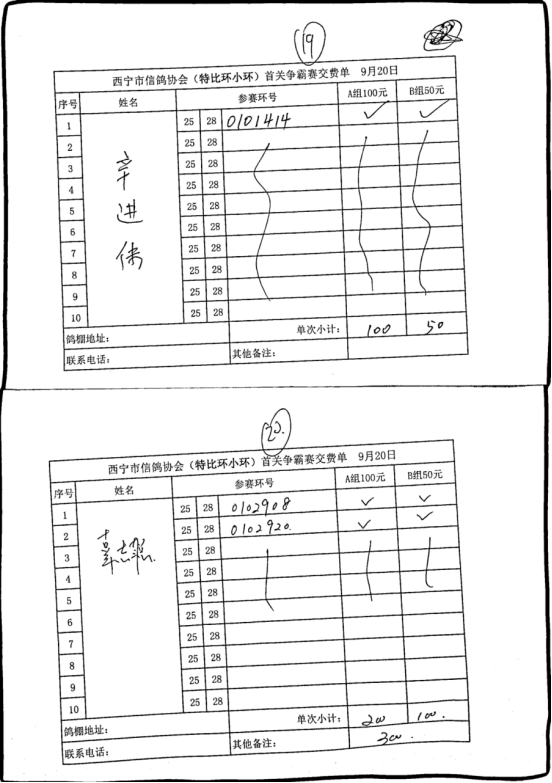 19
西宁市信鸽协会（特比环小环）首关争霸赛交费单 9月20日
序号 姓名 参赛环号 A组100元 B组50元
1 25 28 0101414 ✓ ✓
2 25 28
3 辛 25 28
4 25 28
5 进 25 28
6 25 28
7 伟 25 28
8 25 28
9 25 28
10 25 28
鸽棚地址： 单次小计： 100 50
联系电话： 其他备注：
西宁市信鸽协会（特比环小环）首关争霸赛交费单 9月20日
序号 姓名 参赛环号 A组100元 B组50元
1 25 28 0102908 ✓ ✓
2 25 28 0102920. ✓ ✓
3 25 28
4 25 28
5 25 28
6 25 28
7 25 28
8 25 28
9 25 28
10 25 28
鸽棚地址： 单次小计： 200 100.
联系电话： 其他备注： 300.